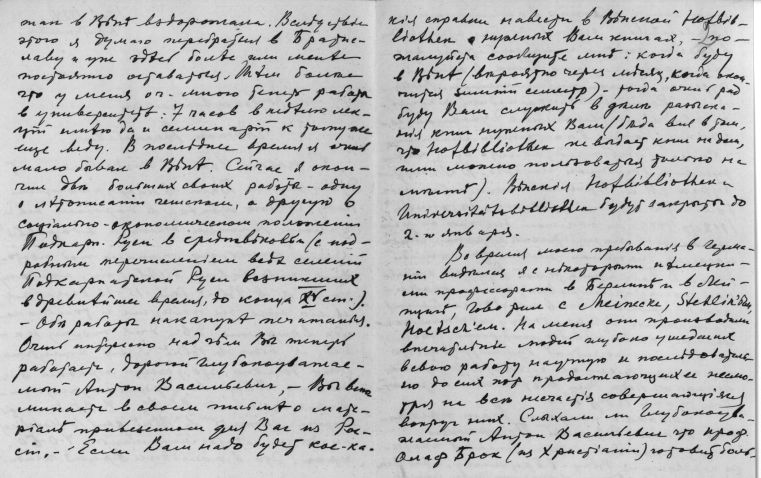 так в Вѣнѣ вздорожала. Вслѣдствіе
этого я думаю перебраться в Брати-
славу и уже здѣсь болѣе или менѣе
постоянно оставаться. Тѣм болѣе
что у меня оч. много теперь работы
в университетѣ: 7 часов в недѣлю лек-
ціи читаю да и семинарій к тому же
еще веду. В послѣднее время я очень
мало бывал в Вѣнѣ. Сейчас я окон-
чил двѣ больших своих работы – одну
о лѣтописаніи чешском, а другую о
соціально-экономическом положеніи
Подкарп. Руси в средневѣковьи (с под-
робным перечисленіем всѣх селеній
Подкарпатской Руси возникших
в древнѣйшее время, до конца XV ст.).
– Обѣ работы накануне печатанія.
Очень интересно над чѣм Вы теперь
работаете, дорогой глубокоуважае-
мый Антон Васильевич, – Вы вспо-
минаете в своем письмѣ о мате-
ріалѣ привезенном для Вас из Рос-
сіи. – Если Вам надо будет кое-ка-
кія справки навести в Вѣнской Hofbib-
liothek о нужных Вам книгах, – по-
жалуйста сообщите мнѣ: когда буду
в Вѣнѣ (вѣроятно через мѣсяц, когда окон-
чится зимній семестр) – тогда очень рад
буду Вам служить в дѣлѣ разыска-
нія книг нужных Вам (бѣда вся в том,
что Hofbibliothek не выдает книг на дом,
ими можно пользоваться только на
мѣстѣ). Вѣнскія Hofbibliothek и
Universitätsbibliothek будут закрыты до
2-го января.
Во время моего пребыванія в Герма-
ніи видѣлся я с нѣкоторыми нѣмецки-
ми профессорами в Берлинѣ и в Лей-
пцигѣ, говорил с Meinecke, Stählin'ом,
Hoetsch'ем. На меня они производили
впечатлѣніе людей глубоко ушедших
в свою работу научную и послѣдователь-
но до сих пор продолжающих ее несмо-
тря на всѣ несчастія совершающіяся
вокруг них. Слыхали ли Глубокоува-
жаемый Антон Васильевич что проф.
Олаф Брок (из Христіаніи) готовит боль-